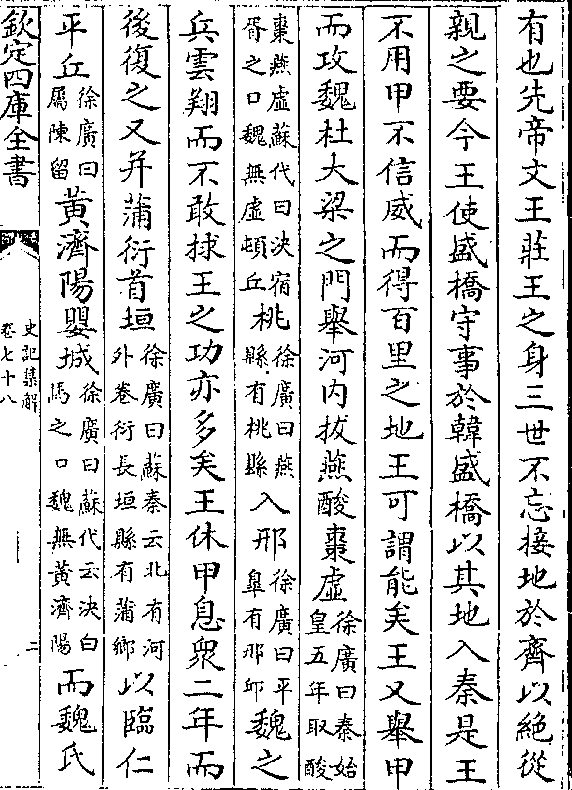 有也先帝文王莊王之身三世不忘接地於齊以絶從
親之要今王使盛橋守事於韓盛橋以其地入秦是王
不用甲不信威而得百里之地王可謂能矣王又舉甲
而攻魏杜大梁之門舉河内拔燕酸棗虛徐廣曰秦始皇五年取酸
棗燕虛蘇代曰決宿胥之口魏無虛頓丘桃徐廣曰燕縣有桃縣入邢徐廣曰平臯有邢邱魏之
兵雲翔而不敢捄王之功亦多矣王休甲息衆二年而
後復之又并蒲衍首垣徐廣曰蘇秦云北有河外卷衍長垣縣有蒲鄉以臨仁
平丘徐廣曰屬陳留黃濟陽嬰城徐廣曰蘇代云決白馬之口魏無黃濟陽而魏氏
欽定四庫全書
史記集解
卷七十八
二